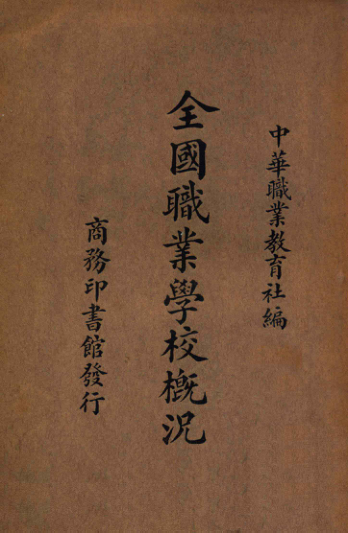 中華職業教育社編
全國職業學校概況
商務印書館發行